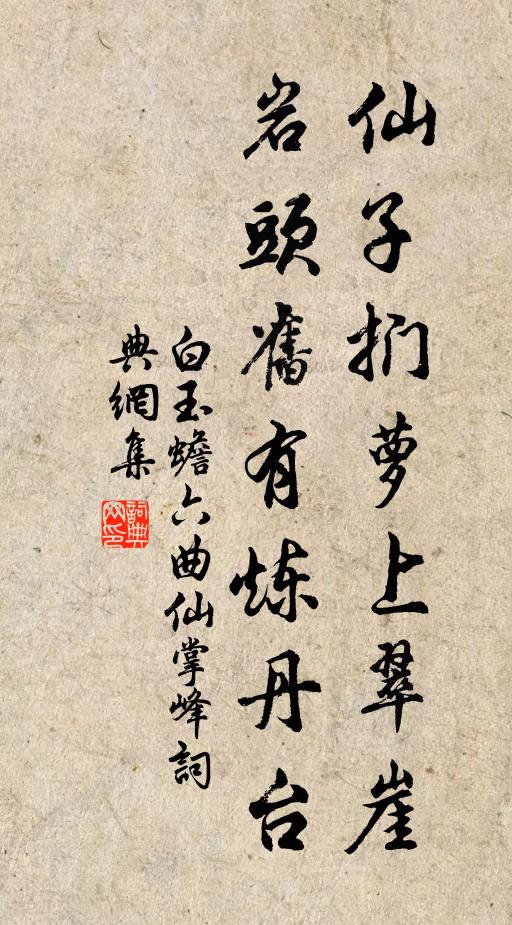 仙子扪萝上翠崖
岩頭舊有炼丹台
白玉蟾六曲仙掌峰詞
典網集
詞典網印